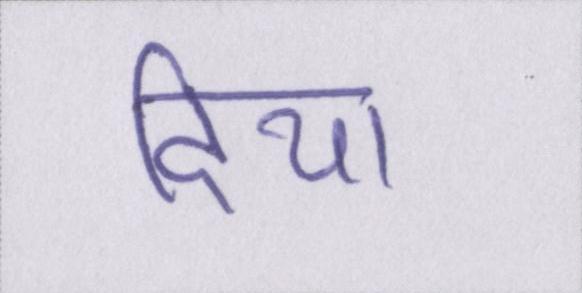 दिया